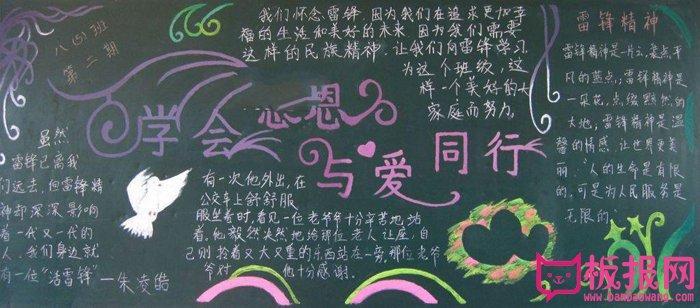 八(5)班
第二期
我们怀念雷锋,因为我们在追求更加幸
福的生活和美好的未来,因为我们需要
这样的民族精神,让我们向雷锋学习
为这个班级,这
样一个美好的大
家庭而努力。
雷锋精神
雷锋精神是一片云,装点平
凡的蓝点;雷锋精神是
一朵花,点缀黯然的
大地;雷锋精神是温
馨的情感,让世界更美
丽。"人的生命是有限
的,可是为人民服务是
无限的。"
学会感恩
与爱同行
虽然
雷锋已离我
们远去,但雷锋精
神却深深影响
着一代又一代的
人,我们身边就
有一位"活雷锋"—朱凌皓
有一次他外出,在
公交车上舒舒服
服坐着时,看见一位老爷爷十分辛苦地站
着。他毅然决然地给那位老人让座,自
己则拎着又大又重的东西站在一旁,那位老爷
爷对 他十分感谢。
板报网
www.banbaowang.com